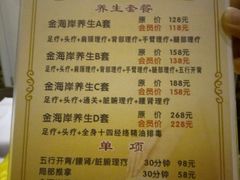 养生套餐
金海岸养生A套 原价 128元
会员价 118元
足疗+头疗+肩颈理疗+背部理疗+手臂理疗+腿部理疗
金海岸养生B套 原价 158元
会员价 138元
足疗+头疗+肩颈理疗+背部理疗+手臂理疗+腿部理疗+五行开背
金海岸养生C套 原价 188元
会员价 158元
足疗+头疗+通关+脏腑理疗+腰肾理疗
金海岸养生D套 原价 268元
会员价 228元
足疗+头疗+全身十四经络精油排毒
单项
五行开背/腰肾/脏腑理疗 30分钟 98元
局部推拿 30分钟 58元